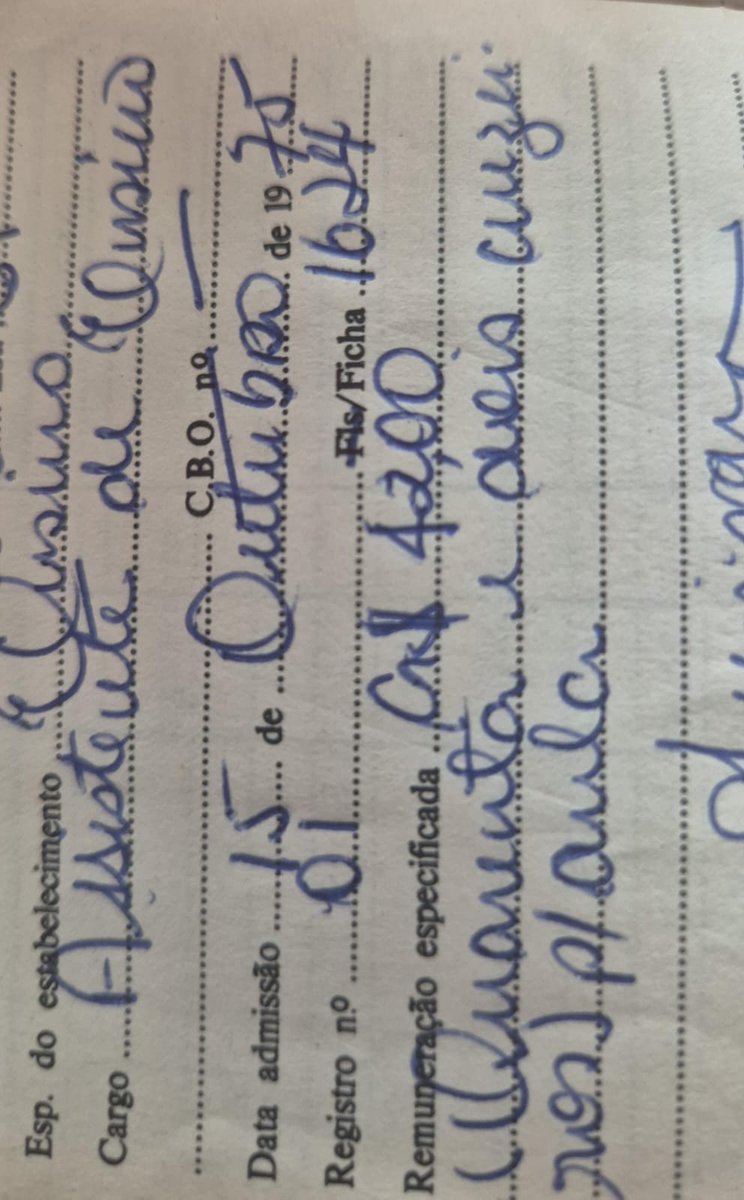 Esp. do estabelecimento Ensino
Cargo Assistente de Ensino
C.B.O. nº —
Data admissão 15 de Outubro de 1975
Registro nº 01 Fls/Ficha 1624
Remuneração especificada Cr$ 42,00
(Quarenta e dois cruzei-
ros) p/ aula